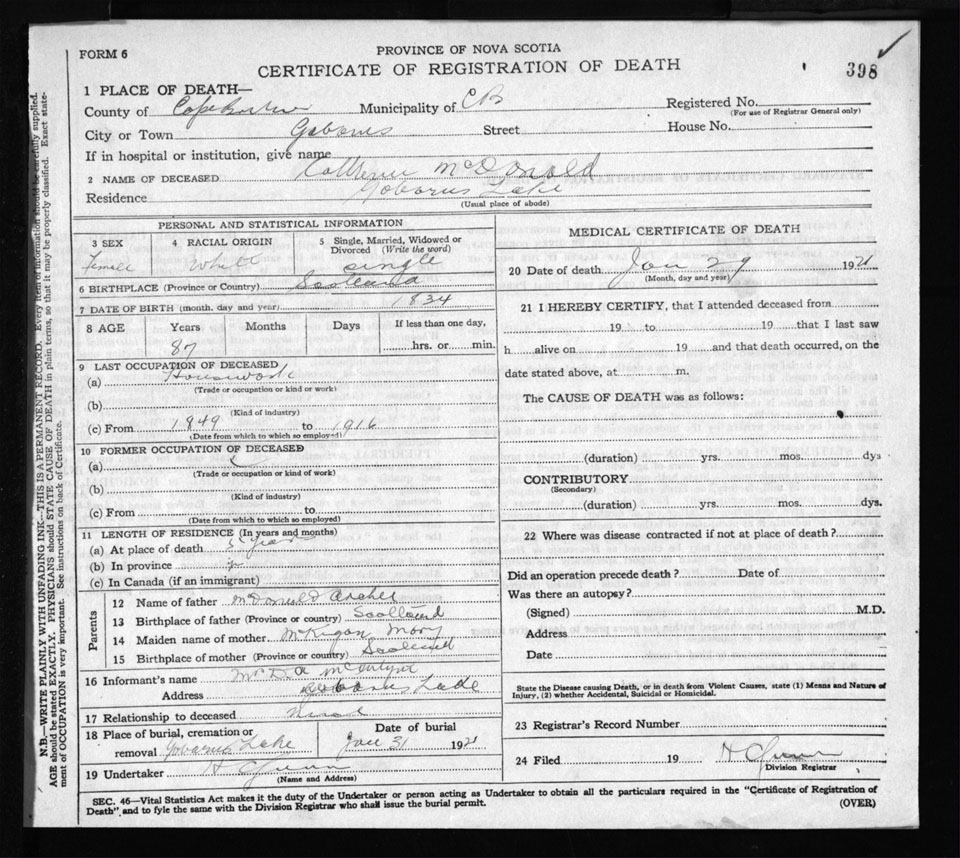 FORM 6
PROVINCE OF NOVA SCOTIA
CERTIFICATE OF REGISTRATION OF DEATH
398
1 PLACE OF DEATH—
County of Cape Breton Municipality of C B Registered No.
(For use of Registrar General only)
City or Town Gabarus Street House No.
If in hospital or institution, give name
2 NAME OF DECEASED Catherine McDonald
Residence Gabarus Lake
(Usual place of abode)
PERSONAL AND STATISTICAL INFORMATION
3 SEX 4 RACIAL ORIGIN 5 Single, Married, Widowed or Divorced (Write the word)
Female White Single
6 BIRTHPLACE (Province or Country) Scotland
7 DATE OF BIRTH (month, day and year) 1834
8 AGE Years Months Days If less than one day,
87 hrs. or min.
9 LAST OCCUPATION OF DECEASED
(a) Housework
(Trade or occupation or kind or work)
(b)
(Kind of industry)
(c) From 1849 to 1916
(Date from which to which so employed)
10 FORMER OCCUPATION OF DECEASED
(a)
(Trade or occupation or kind of work)
(b)
(Kind of industry)
(c) From to
(Date from which to which so employed)
11 LENGTH OF RESIDENCE (In years and months)
(a) At place of death 5 years
(b) In province
(c) In Canada (if an immigrant)
Parents
12 Name of father McDonald
13 Birthplace of father (Province or country) Scotland
14 Maiden name of mother Mary
15 Birthplace of mother (Province or country) Scotland
16 Informant's name McIntyre
Address Gabarus Lake
17 Relationship to deceased
18 Place of burial, cremation or removal Gabarus Lake Date of burial Jan 31 1921
19 Undertaker H Gunn
(Name and Address)
MEDICAL CERTIFICATE OF DEATH
20 Date of death Jan 29 1921
(Month, day and year)
21 I HEREBY CERTIFY, that I attended deceased from
19 to 19 that I last saw
h alive on 19 and that death occurred, on the
date stated above, at m.
The CAUSE OF DEATH was as follows:
(duration) yrs. mos. dys
CONTRIBUTORY
(Secondary)
(duration) yrs. mos. dys.
22 Where was disease contracted if not at place of death?
Did an operation precede death? Date of
Was there an autopsy?
(Signed) M.D.
Address
Date
State the Disease causing Death, or in death from Violent Causes, state (1) Means and Nature of
Injury, (2) whether Accidental, Suicidal or Homicidal.
23 Registrar's Record Number
24 Filed 19 H Gunn
Division Registrar
SEC. 46—Vital Statistics Act makes it the duty of the Undertaker or person acting as Undertaker to obtain all the particulars required in the "Certificate of Registration of
Death" and to fyle the same with the Division Registrar who shall issue the burial permit.
(OVER)
N.B.—WRITE PLAINLY WITH UNFADING INK—THIS IS A PERMANENT RECORD. Every item of information should be carefully supplied.
AGE should be stated EXACTLY. PHYSICIANS should STATE CAUSE OF DEATH in plain terms, so that it may be properly classified. Exact state-
ment of OCCUPATION is very important. See instructions on back of Certificate.